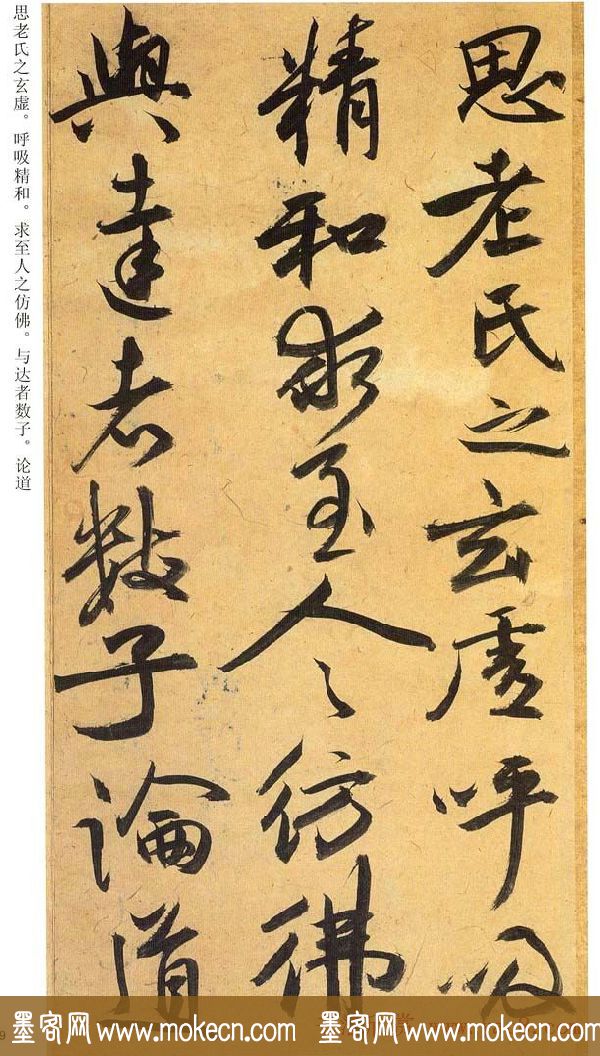 思老氏之玄虛呼吸
精和求至人之彷彿
與達者數子論道
思老氏之玄虚。呼吸精和。求至人之仿佛。与达者数子。论道
墨客网 www.mokecn.com 墨客网 www.mokecn.com
9